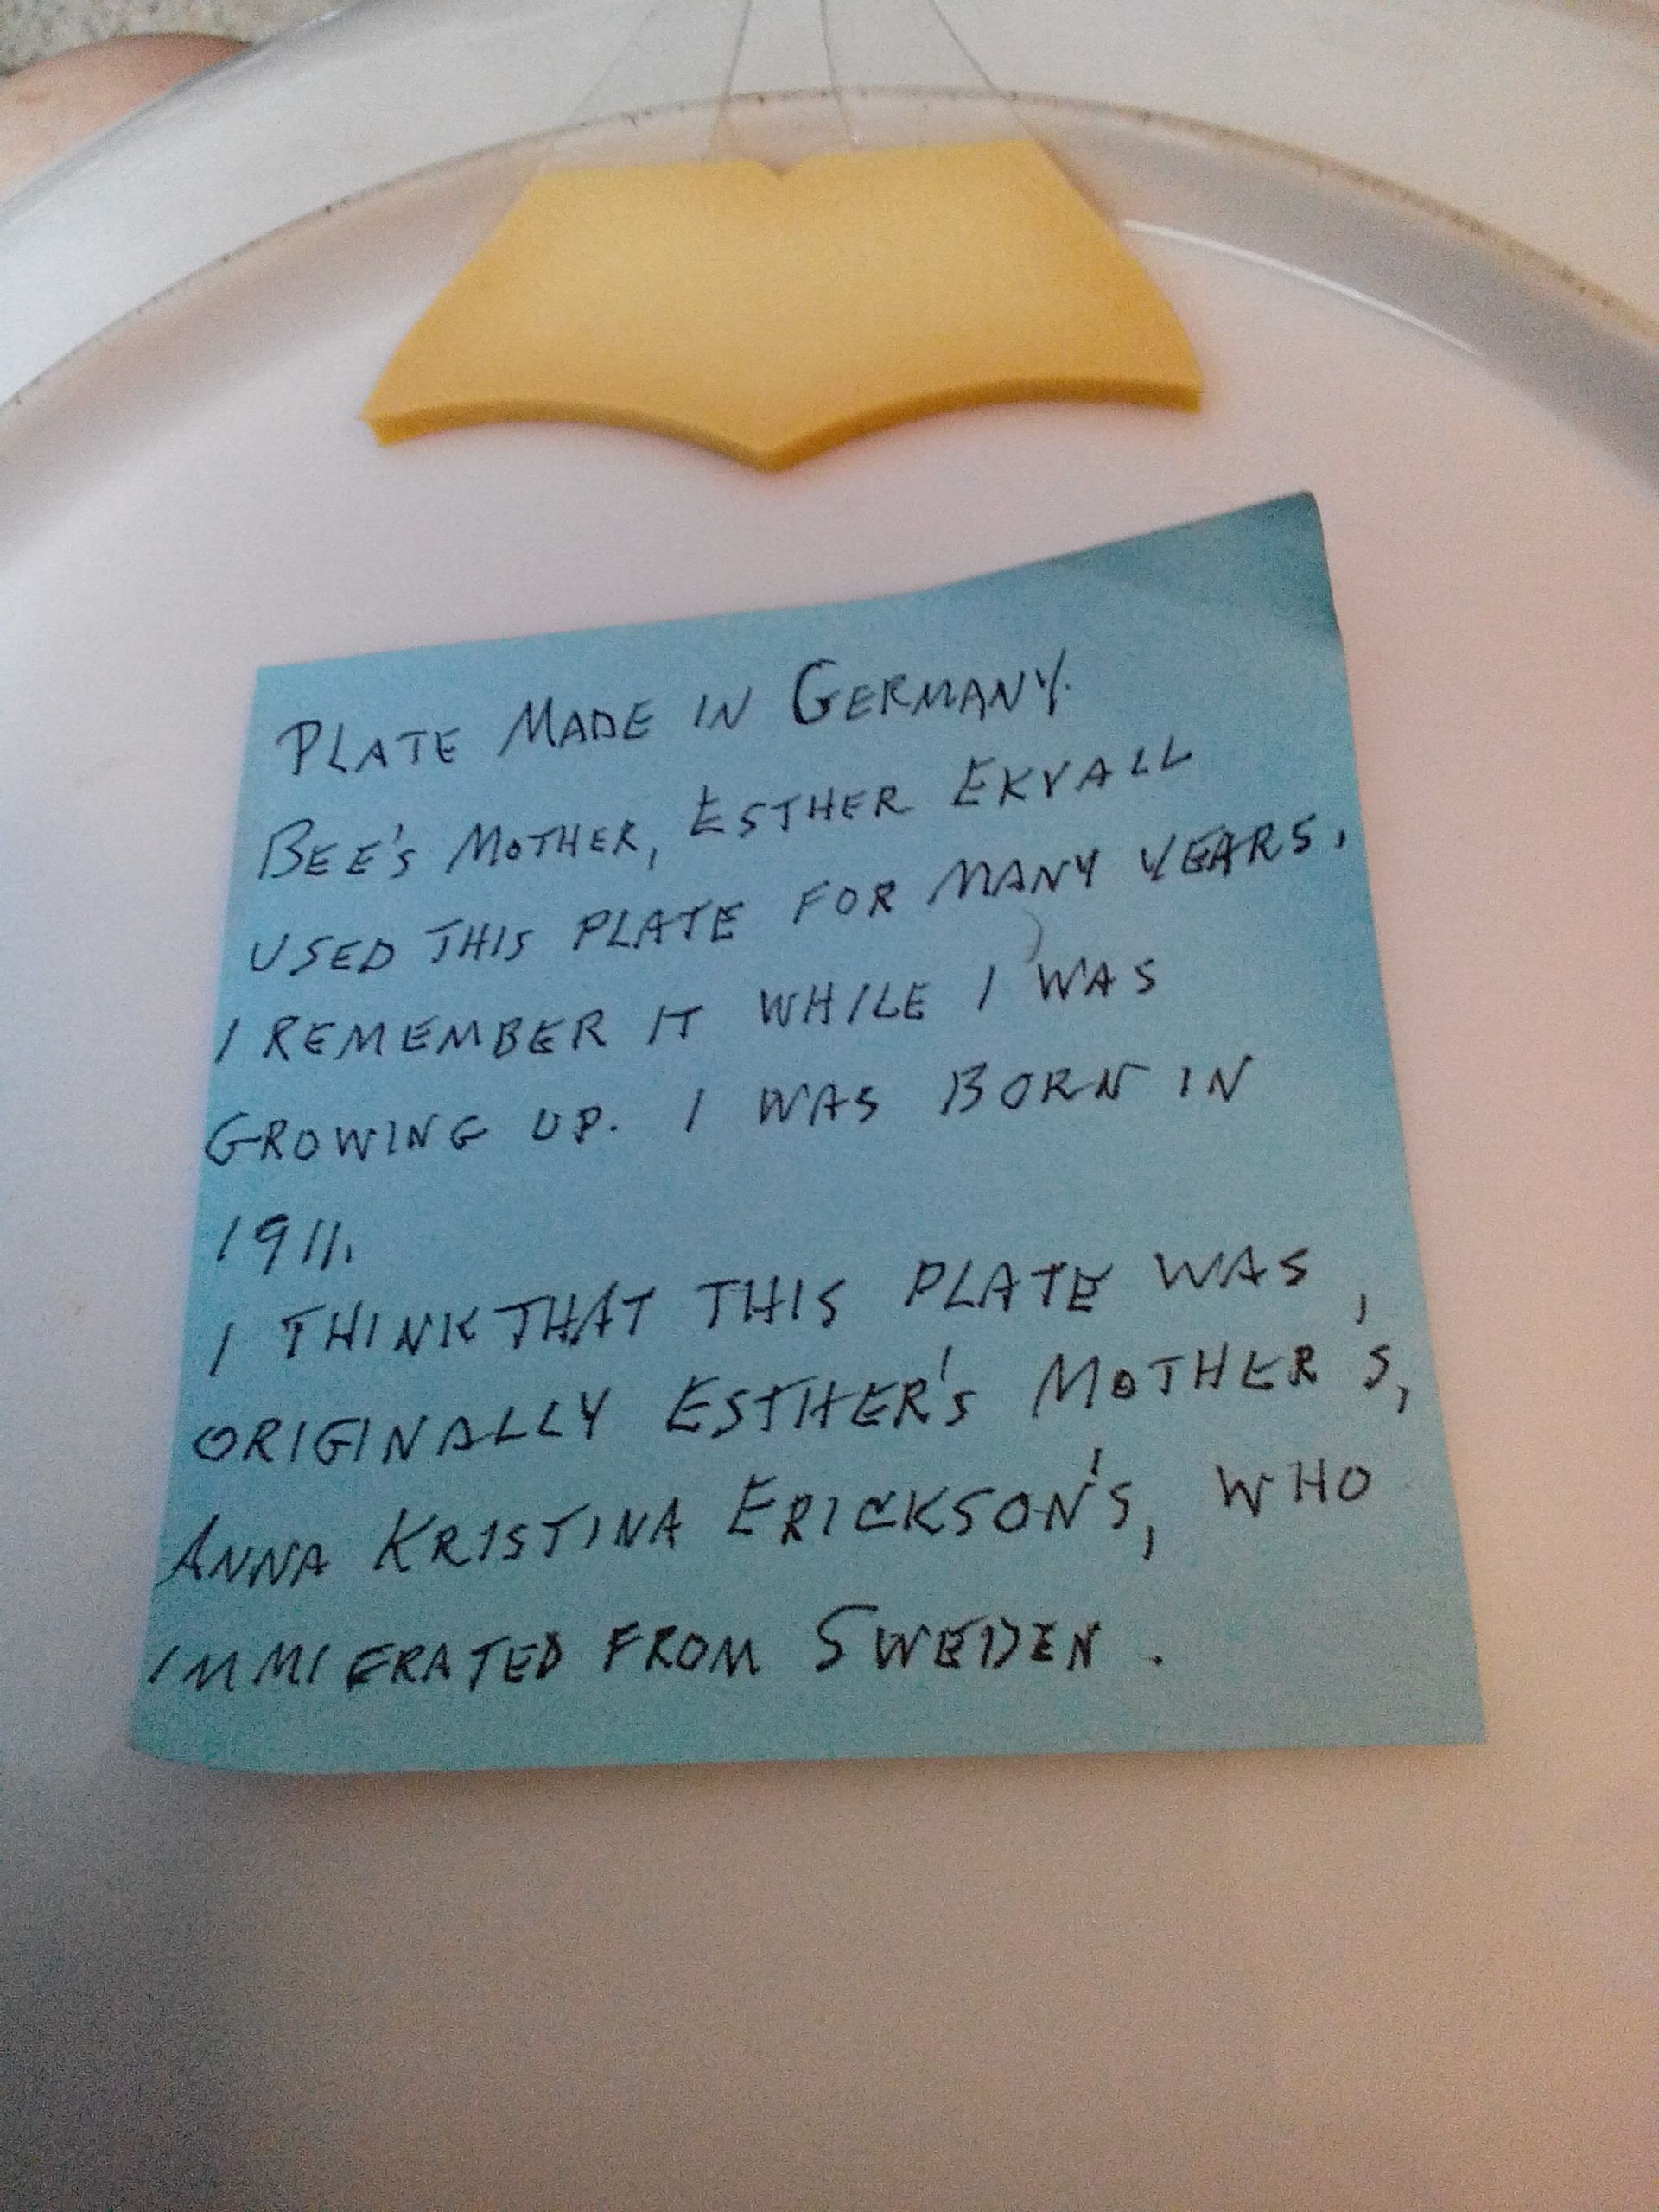 PLATE MADE IN GERMANY.
BEE'S MOTHER, ESTHER EKVALL
USED THIS PLATE FOR MANY YEARS.
I REMEMBER IT WHILE I WAS
GROWING UP. I WAS BORN IN
1911.
I THINK THAT THIS PLATE WAS,
ORIGINALLY ESTHER'S MOTHER'S,
ANNA KRISTINA ERICKSON'S, WHO
IMMIGRATED FROM SWEDEN.